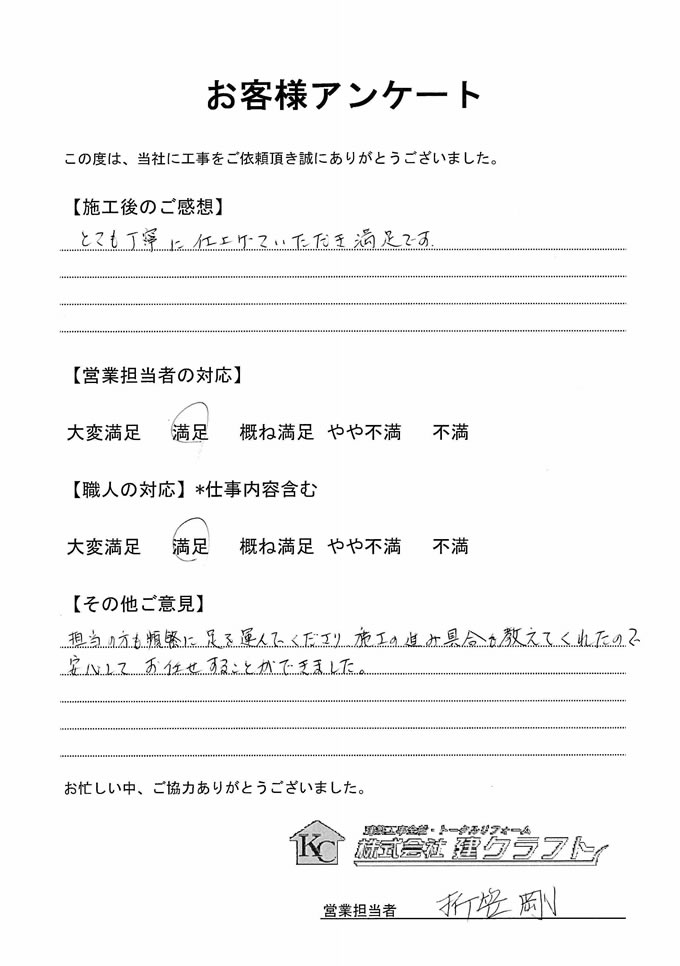 お客様アンケート
この度は、当社に工事をご依頼頂き誠にありがとうございました。
【施工後のご感想】
とても丁寧に仕上げていただき満足です.
【営業担当者の対応】
大変満足 満足 概ね満足 やや不満 不満
【職人の対応】*仕事内容含む
大変満足 満足 概ね満足 やや不満 不満
【その他ご意見】
担当の方も頻繁に足を運んでくださり施工の進み具合も教えてくれたので
安心してお任せすることができました。
お忙しい中、ご協力ありがとうございました。
KC
建築工事全般・トータルリフォーム
株式会社 建クラフト
営業担当者 剛